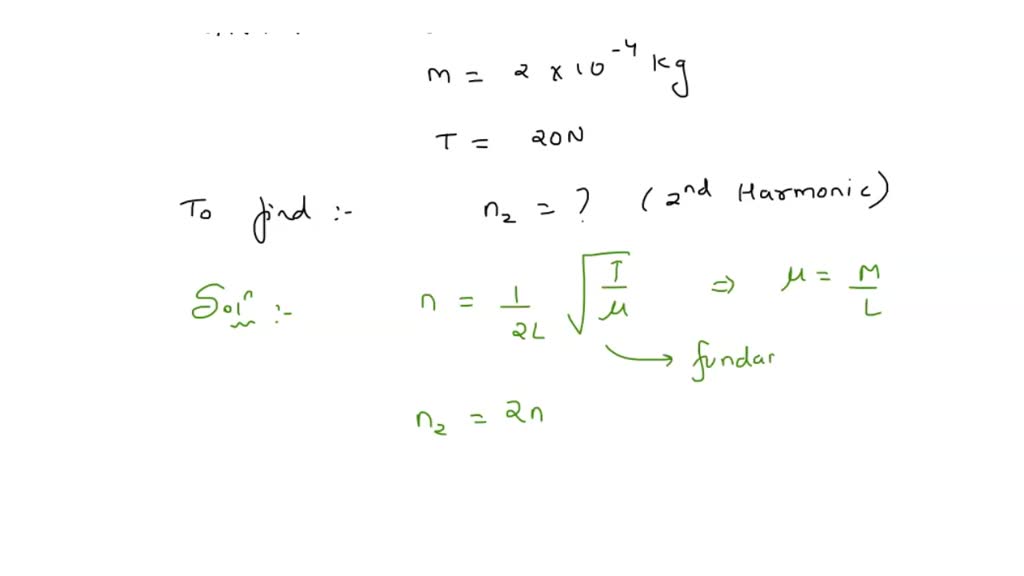 m = 2 × 10⁻⁴ kg
T = 20N
To find :- n₂ = ? (2nd Harmonic)
Solⁿ :- n = 1/2L √T/μ ⇒ μ = M/L
→ fundar
n₂ = 2n